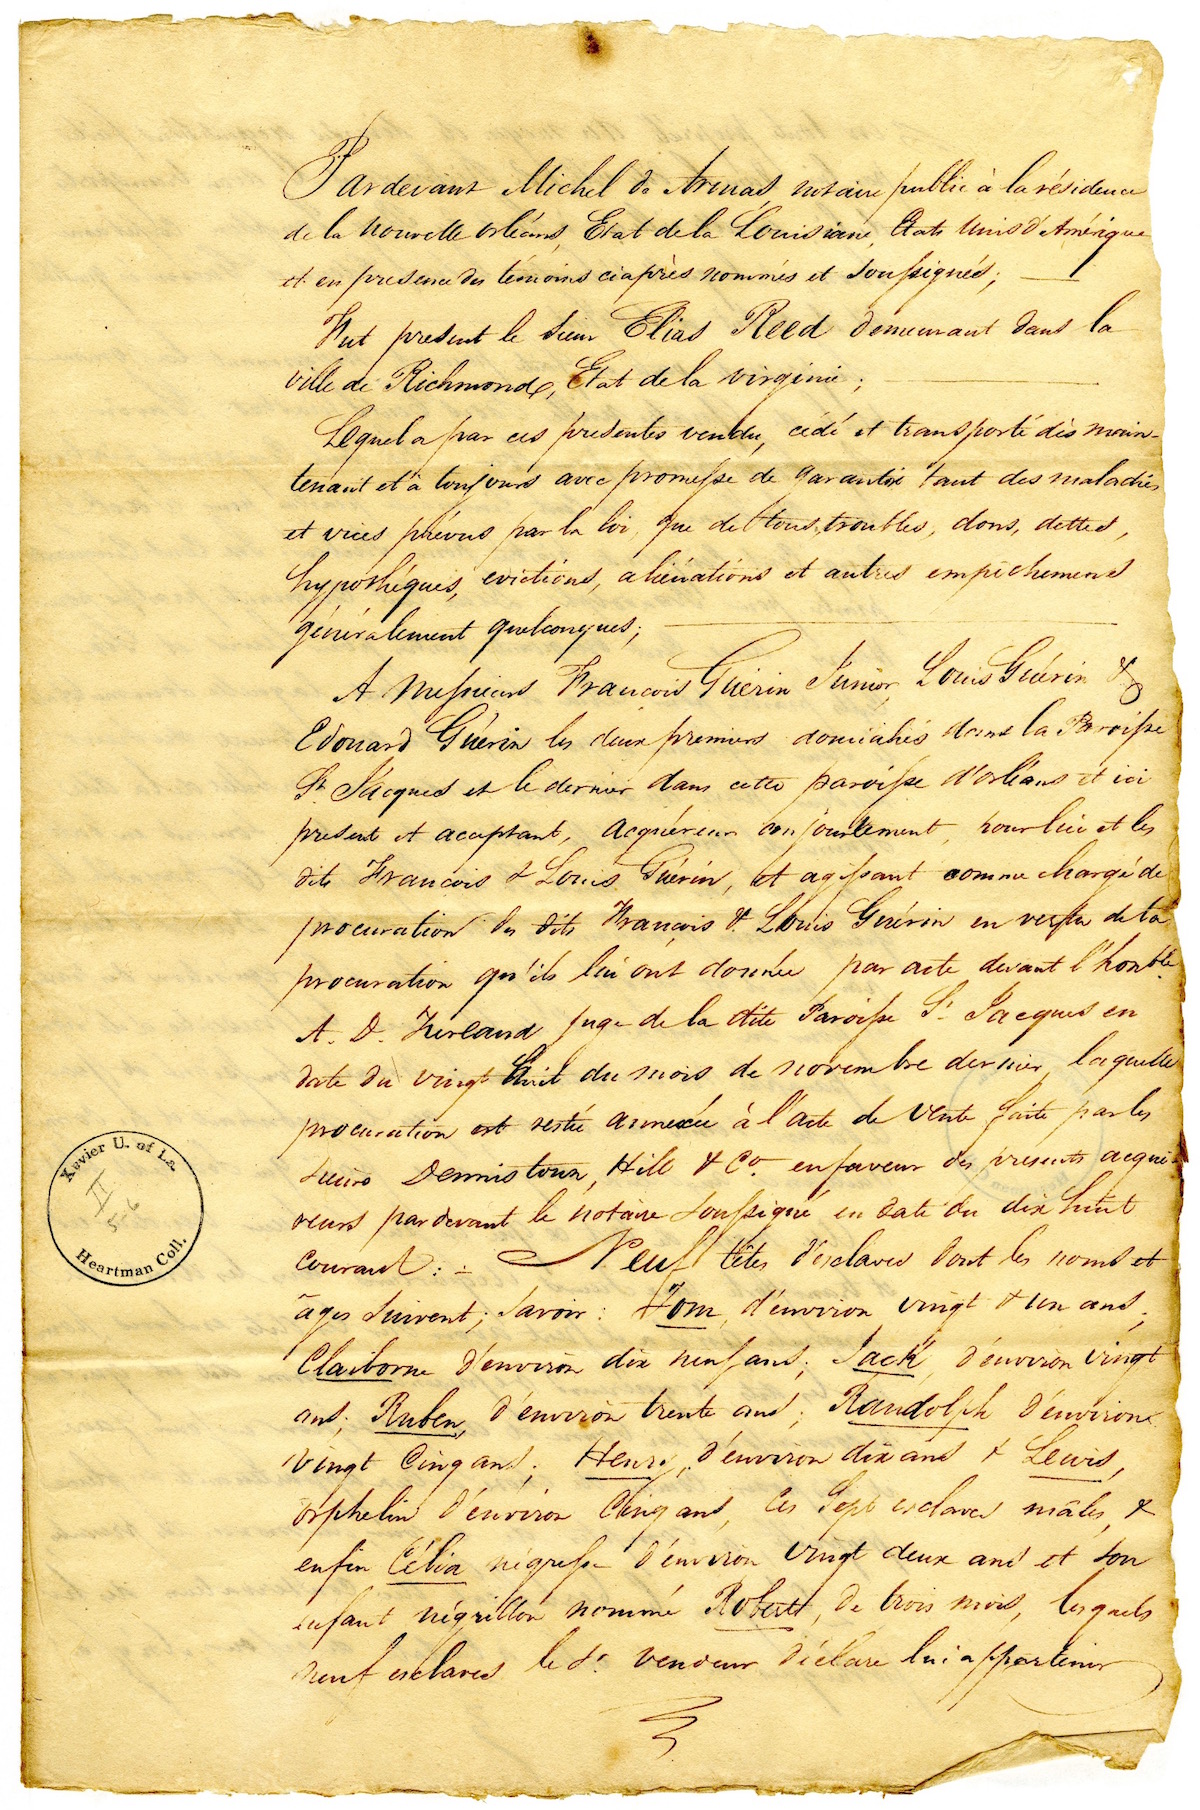 Pardevant Michel de Armas, notaire public à la résidence
de la Nouvelle Orléans, Etat de la Louisiane, Etats Unis d'Amérique
et en presence des témoins ciaprès nommés et soussignés;
Fut present le Sieur Elias Reed demeurant dans la
ville de Richmond, Etat de la virginie;
Lequel a par ces presentes vendu, cédé et transporté dès main-
tenant et à toujours avec promesse de garantie tant des maladies
et vices prévus par la loi, que de tous troubles, dons, dettes,
hypothéques, evictions, aliénations et autres empêchemens
généralement quelconques;
A Messieurs François Guérin Junior, Louis Guérin &
Edouard Guérin les deux premiers domiciliés dans la Paroisse
St. Jacques et le dernier dans cette paroisse d'orléans et ici
present et acceptant, acquéreur conjointement, pour lui et les
dits François & Louis Guérin, et agissant comme chargé de
procuration des dits François & Louis Guérin en vertu de la
procuration qu'ils lui ont donnée par acte devant l'honble.
A. D. juge de la dite Paroisse St. Jacques en
date du vingt huit du mois de novembre dernier, laquelle
procuration est restée annexée à l'acte de vente faite par les
sieurs Dennistoun, Hill & Co. en faveur des presents acqué-
reurs pardevant le notaire soussigné en date du dix huit
courant: = Neuf têtes d'esclaves dont les noms et
âges suivent; savoir: Tom, d'environ vingt & un ans;
Claiborne d'environ dix neuf ans; Jack, d'environ vingt
ans; Ruben, d'environ trente ans; Randolph d'environ
vingt cinq ans; Henry, d'environ dix ans & Lewis,
orphelin d'environ cinq ans, ces sept esclaves mâles, &
enfin Célia négresse d'environ vingt deux ans et son
enfant négrillon nommé Robert, de trois mois, lesquels
neuf esclaves le Sr. vendeur déclare lui appartenir
Xavier U. of La.
II
5-6
Heartman Coll.